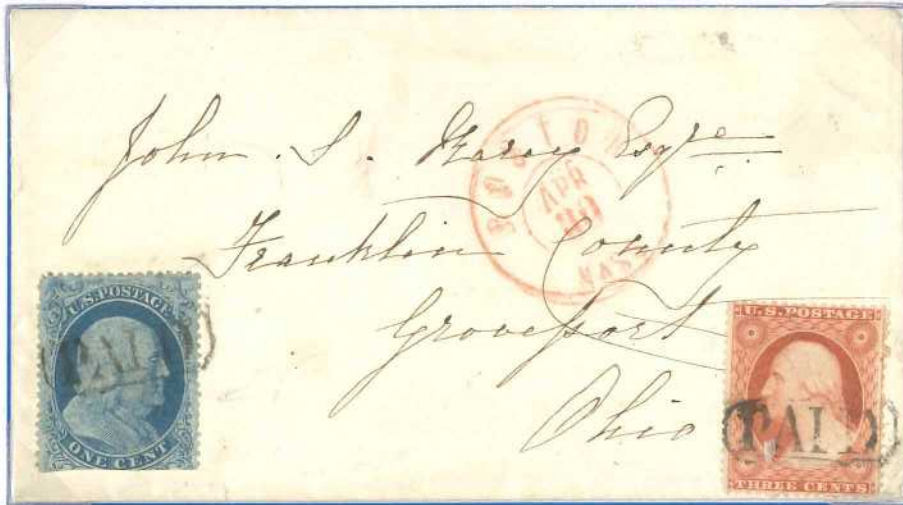 John . S . Rarey Esqre
Franklin County
Groveport
Ohio
BOSTON
APR
MAS
U.S. POSTAGE
PAID
ONE CENT
U.S. POSTAGE
PAID
THREE CENTS